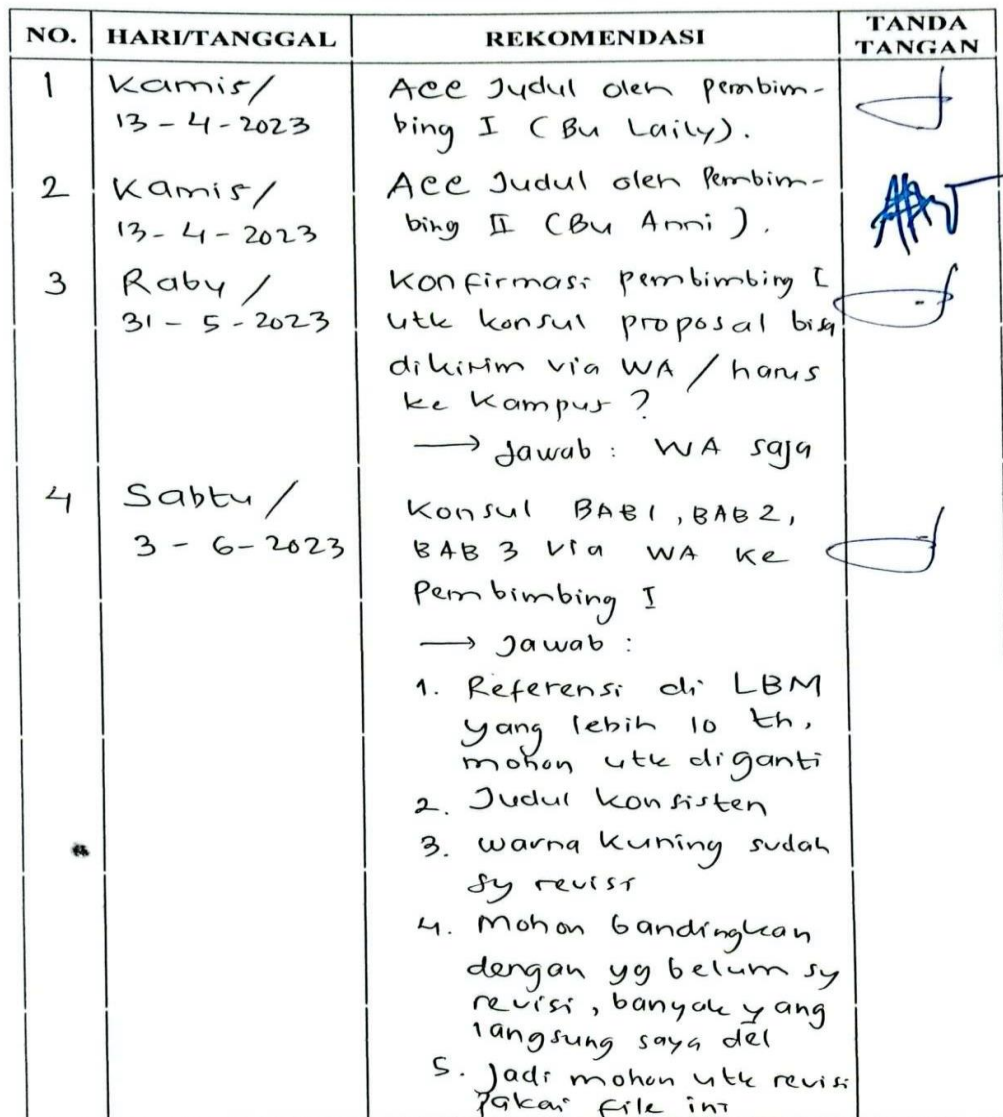 NO. HARI/TANGGAL REKOMENDASI TANDA TANGAN
1 Kamis/ Acc Judul oleh pembim-
13-4-2023 bing I (Bu Laily).
2 Kamis/ Acc Judul oleh Pembim-
13-4-2023 bing II (Bu Anni).
3 Rabu/ Konfirmasi pembimbing I
31-5-2023 utk konsul proposal bisa
dikirim via WA / harus
ke Kampus?
→ Jawab : WA saja
4 Sabtu/ Konsul BAB1, BAB2,
3-6-2023 BAB 3 Via WA ke
Pembimbing I
→ Jawab :
1. Referensi di LBM
yang lebih 10 th,
mohon utk diganti
2. Judul konsisten
3. warna kuning sudah
sy revisi
4. Mohon bandingkan
dengan yg belum sy
revisi, banyak yang
langsung saya del
5. Jadi mohon utk revisi
Pakai file ini